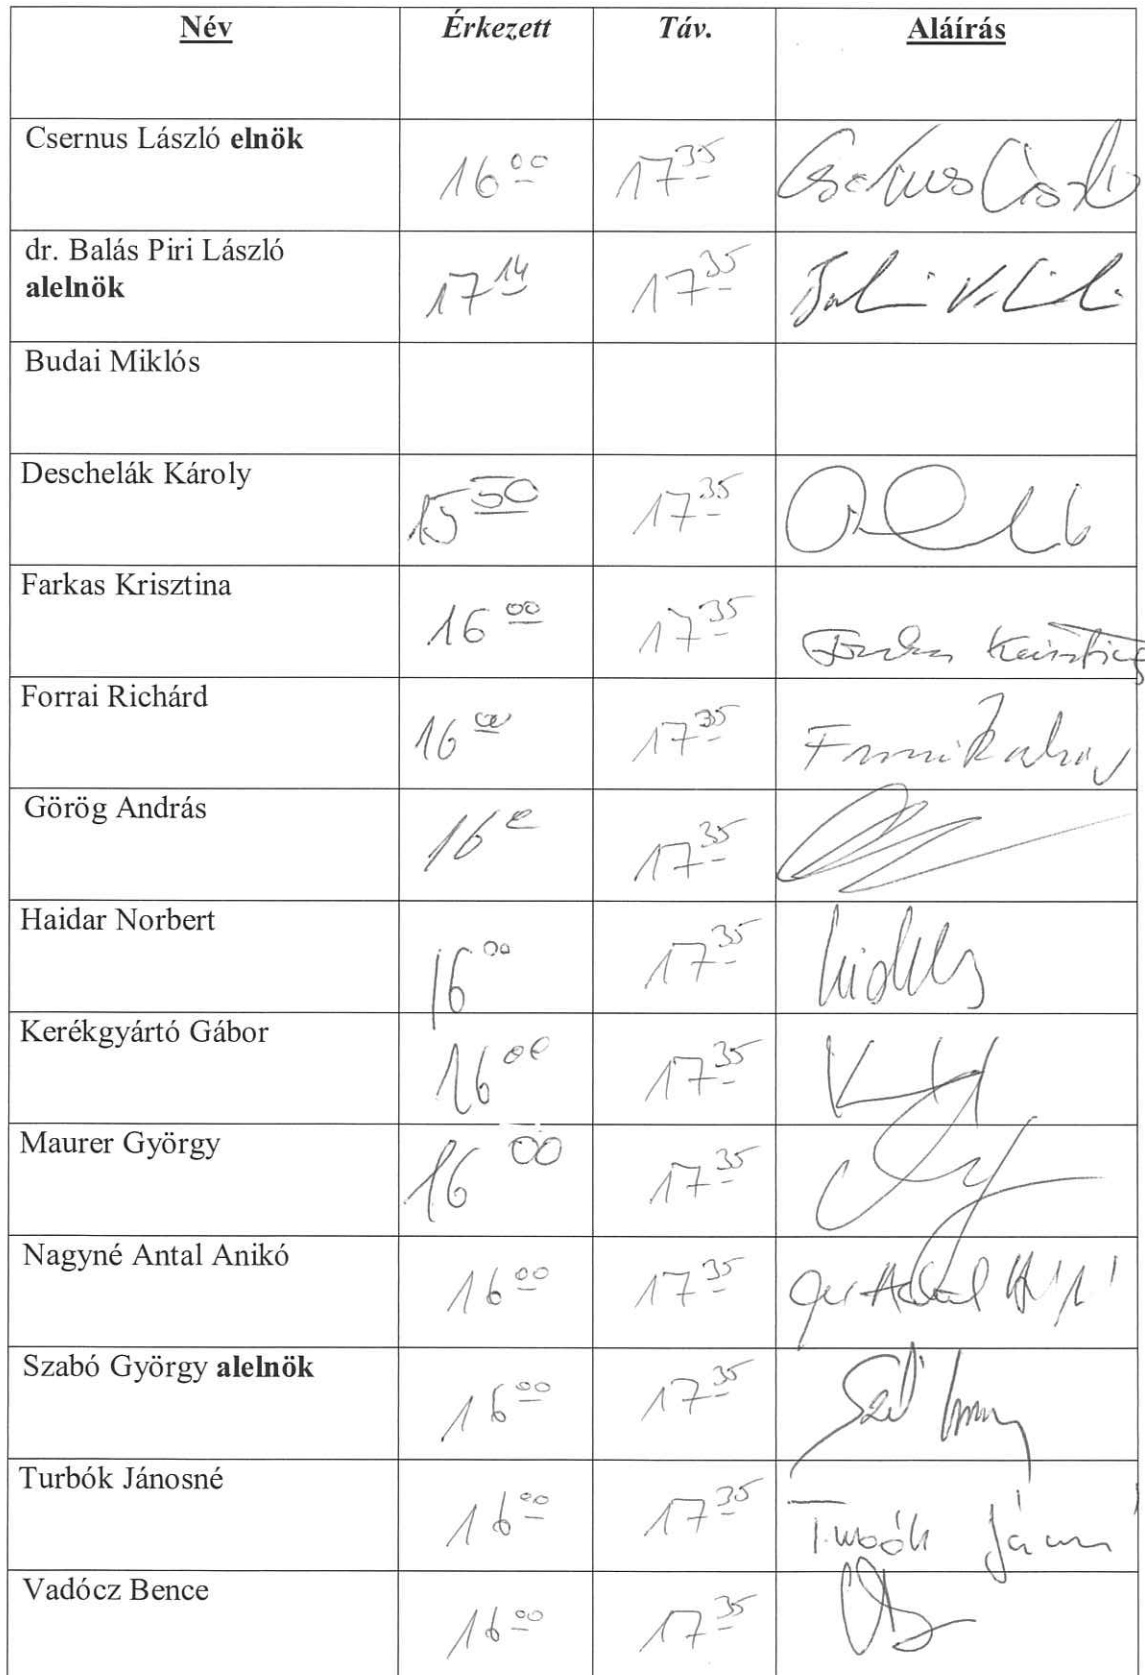 Név Érkezett Táv. Aláírás
Csernus László elnök 16 00 17 35 Csernus László
dr. Balás Piri László 17 14 17 35
alelnök
Budai Miklós
Deschelák Károly 15 50 17 35
Farkas Krisztina 16 00 17 35 Farkas Krisztina
Forrai Richárd 16 00 17 35
Görög András 16 17 35
Haidar Norbert 16 00 17 35
Kerékgyártó Gábor 16 00 17 35
Maurer György 16 00 17 35
Nagyné Antal Anikó 16 00 17 35
Szabó György alelnök 16 00 17 35
Turbók Jánosné 16 00 17 35 Turbók
Vadócz Bence 16 00 17 35